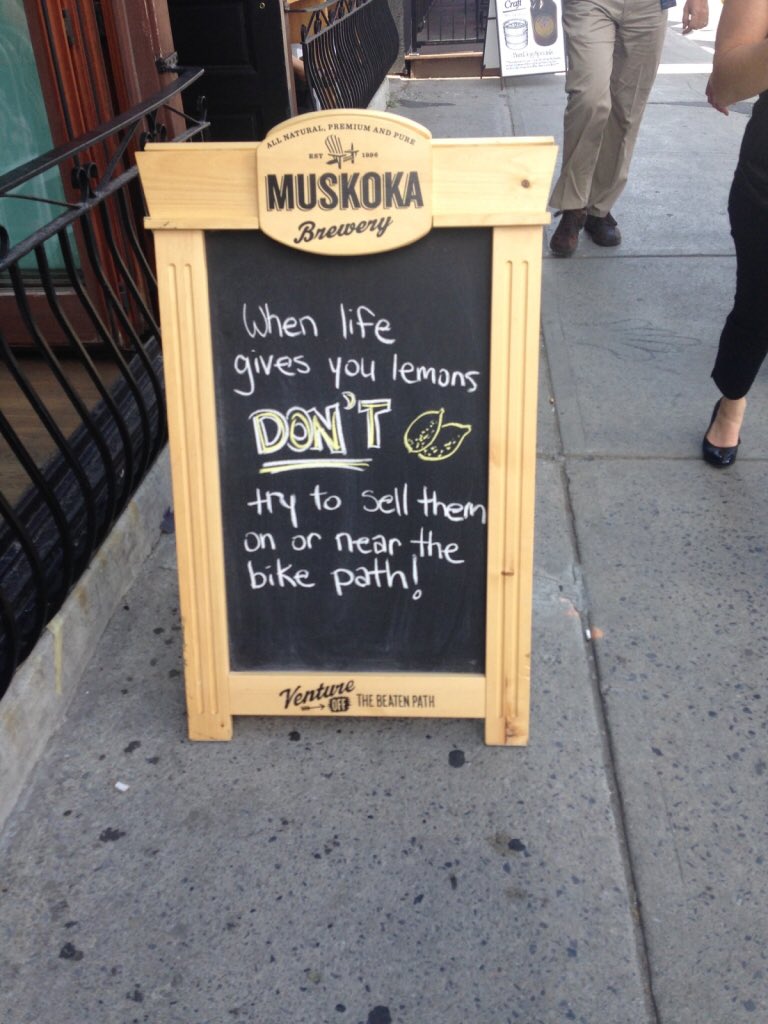 Craft
ALL NATURAL, PREMIUM AND PURE
EST 1996
MUSKOKA
Brewery
When life
gives you lemons
DON'T
try to sell them
on or near the
bike path!
Venture OFF THE BEATEN PATH